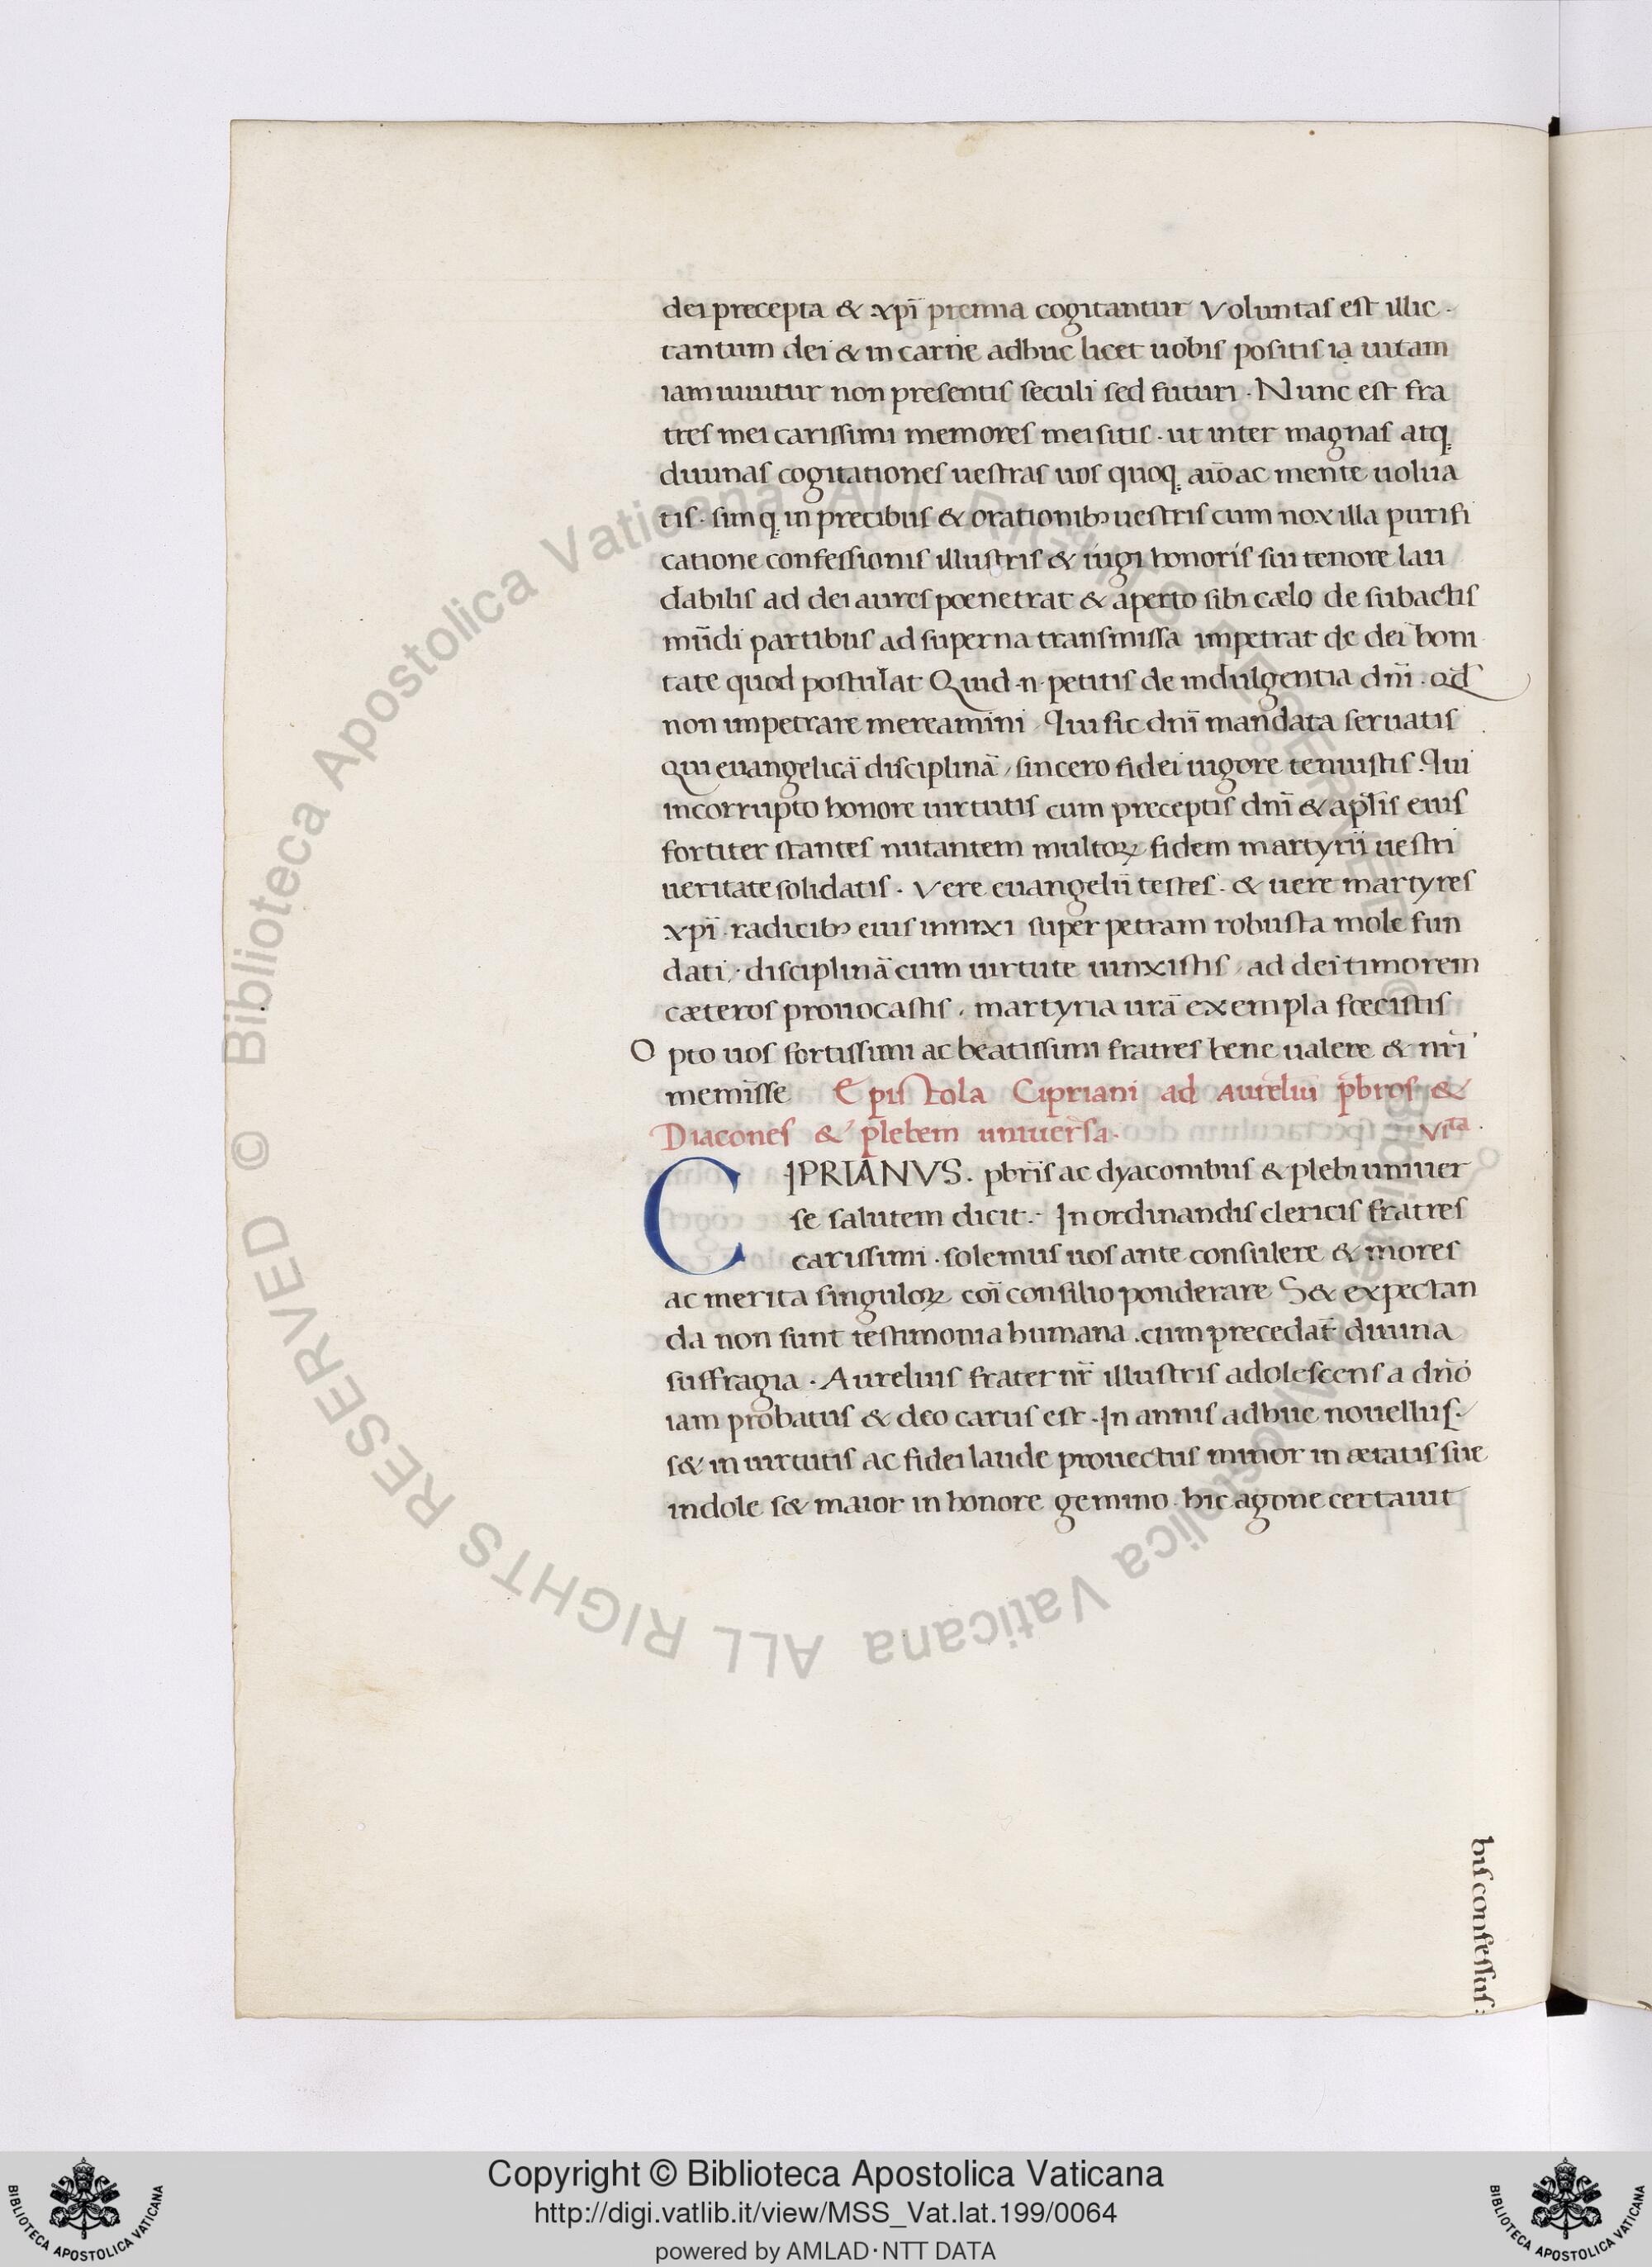 dei precepta & xpī premia cogitantur Voluntas est illic.
tantum dei & in carne adhuc licet uobis positis ia uitam
iam uiuitur non presentis seculi sed futuri. Nunc est fra
tres mei carissimi memores mei sitis. ut inter magnas atq;
diuinas cogitationes uestras uos quoq; aīo ac mente uolua
tis. sim q; in precibus & orationibꝫ uestris cum uox illa purifi
catione confessionis illustris & iugi honoris sui tenore lau
dabilis ad dei aures poenetrat & aperto sibi cælo de subactis
mūdi partibus ad superna transmissa impetrat de dei boni
tate quod postulat Quid .n. petitis de indulgentia dnī. qd
non impetrare mereamini. Qui sic dnī mandata seruatis
Qui euangelicā disciplinā, sincero fidei uigore tenuistis. Qui
incorrupto honore uirtutis cum preceptis dnī & aplīs eius
fortiter stantes nutantem multoꝝ fidem martyrii uestri
ueritate solidatis. Vere euangelii testes. & uere martyres
xpī. radicibꝫ eius innixi super petram robusta mole fun
dati, disciplinā cum uirtute uinxistis, ad dei timorem
cæteros prouocastis, martyria urā exempla fœcistis
Opto uos fortissimi ac beatissimi fratres bene ualere & nrī
memīsse Epistola Cipriani ad Aureliū p̄bros &
Diacones & plebem uniuersa. VIta.
CIPRIANVS. pbrīs ac dyaconibus & plebi uniuer
se salutem dicit. In ordinandis clericis fratres
carissimi. solemus uos ante consulere & mores
ac merita singuloꝝ coī consilio ponderare S& expectan
da non sunt testimonia humana. cum precedāt diuina
suffragia. Aurelius frater nr̄ illustris adolescens a dnō
iam probatus & deo carus est. In annis adhuc nouellus.
s& in uirtutis ac fidei laude prouectus minor in ætatis sue
indole s& maior in honore gemino. hic agone certauit
bis confessus:
Copyright © Biblioteca Apostolica Vaticana
http://digi.vatlib.it/view/MSS_Vat.lat.199/0064
powered by AMLAD·NTT DATA
BIBLIOTECA APOSTOLICA VATICANA
BIBLIOTECA APOSTOLICA VATICANA
© Biblioteca Apostolica Vaticana ALL RIGHTS RESERVED
© Biblioteca Apostolica Vaticana ALL RIGHTS RESERVED